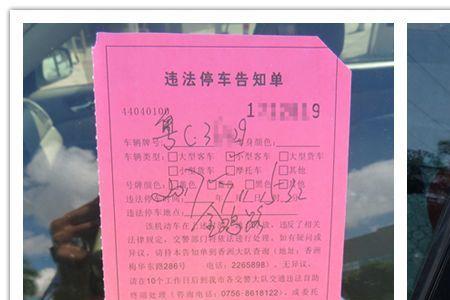 违法停车告知单
44040100 1 9
车辆牌号: 粤C·3 9 车身颜色:
车辆类型: □大型客车 □小型客车 □大型货车
□小型货车 □摩托车 □其他
号牌颜色: □黄色 □蓝色 □黑色 □其他
违法停车时间:
违法停车地点:
该机动车在上述 违反了相关
法律规定, 交警部门将依法进行处理。如有疑问或
异议, 请持本告知单到香洲大队查询(地址: 香洲
梅华东路286号 电话: 2265898)。无异议,
请在10个工作日后到我市各交警大队交通违法自助
终端处理(咨询电话: 0756-8618122)或委托